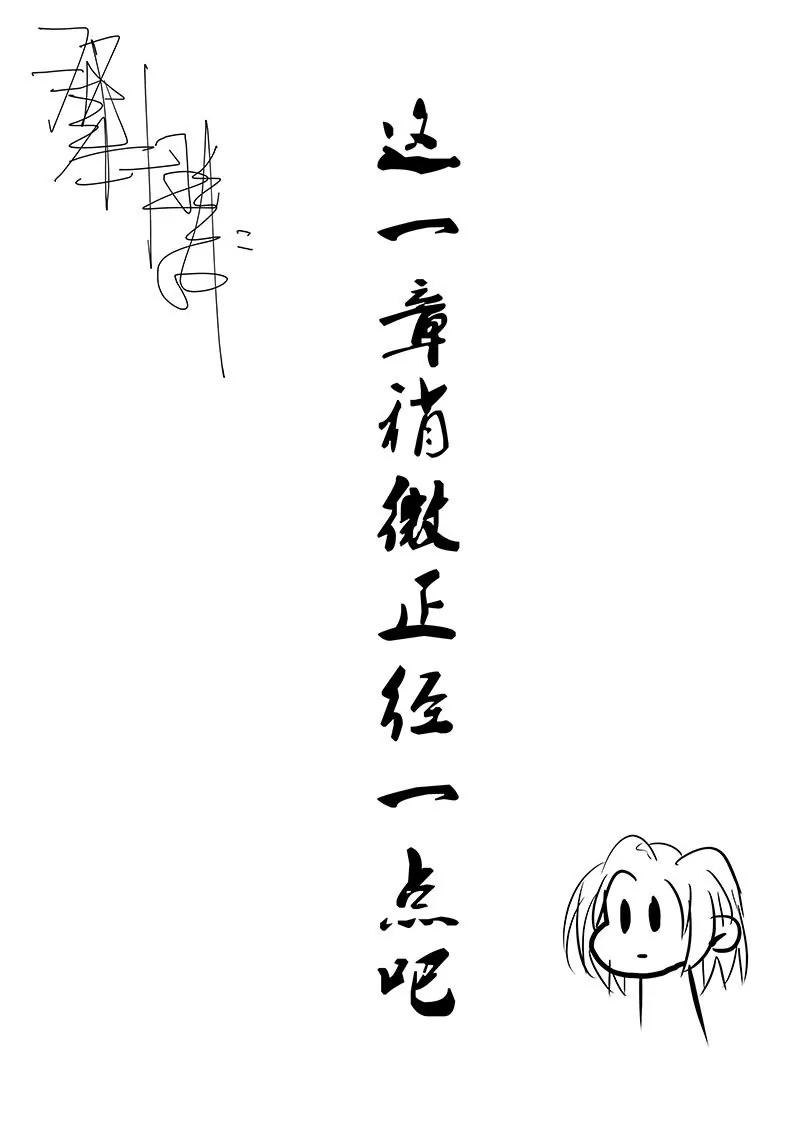 这一章稍微正经一点吧